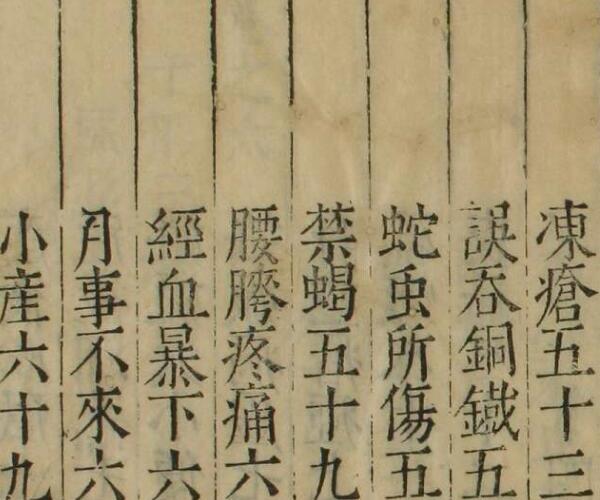 凍瘡五十三
誤吞銅鐵五
蛇虫所傷五
禁蝎五十九
腰胯疼痛六
經血暴下六
月事不來六
小産六十九